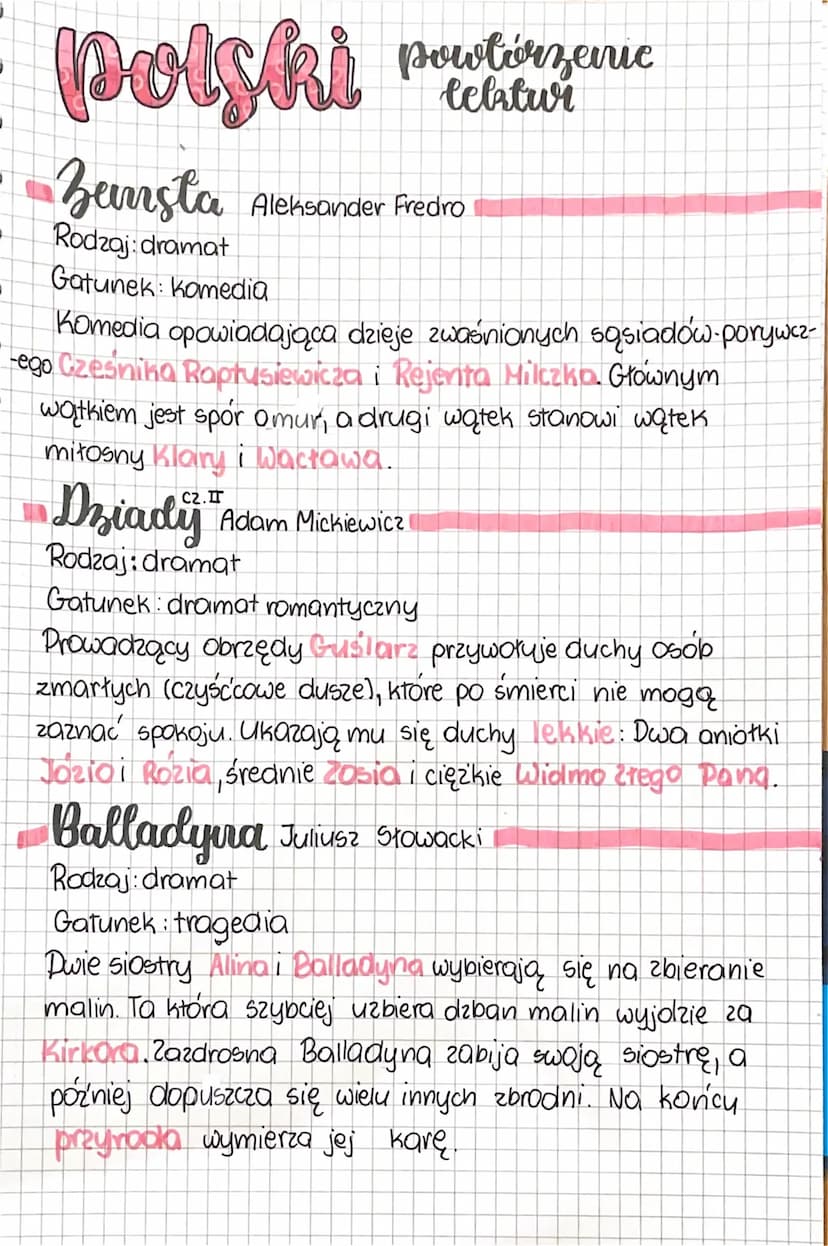 polski powtórzenie
lektur
Zemsta Aleksander Fredro
Rodzaj: dramat
Gatunek: komedia
Komedia opowiadająca dzieje zwaśnionych sąsiadów-porywcz-
-ego Cześnika Raptusiewicza i Rejenta Milczka. Głównym
wątkiem jest spór o mur, a drugi wątek stanowi wątek
miłosny Klary i Wacława.
Dziady cz. II Adam Mickiewicz
Rodzaj: dramat
Gatunek: dramat romantyczny
Prowadzący obrzędy Guślarz przywołuje duchy osób
zmarłych (czyśćcowe dusze), które po śmierci nie mogą
zaznać spokoju. Ukazają mu się duchy lekkie: Dwa aniołki
Józio i Rózia, średnie Zosia i ciężkie Widmo Złego Pana.
Balladyna Juliusz Słowacki
Rodzaj: dramat
Gatunek: tragedia
Dwie siostry Alina i Balladyna wybierają się na zbieranie
malin. Ta która szybciej uzbiera dzban malin wyjdzie za
Kirkora. Zazdrosna Balladyna zabija swoją siostrę, a
później dopuszcza się wielu innych zbrodni. Na końcu
przyroda wymierza jej karę.